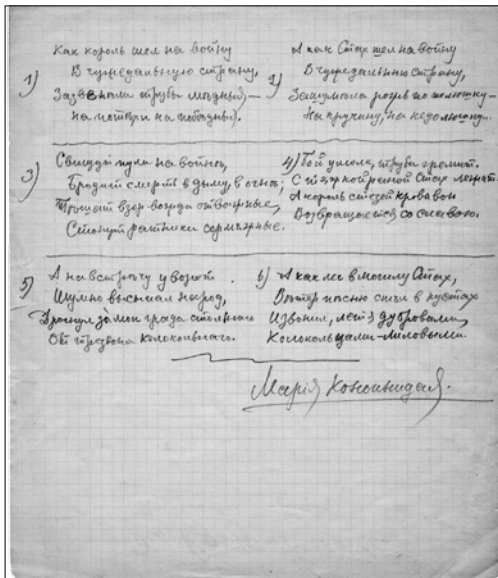 1) Как король шел на войну
В чужедальнюю страну,
Зазвенели трубы медныя —
на потехи на победныя.
2) А как Стах шел на войну
В чужедальнюю страну,
Зашумела рожь по полюшку —
На кручину, на недолюшку...
3) Свищут пули на войне,
Бродит смерть в дыму, в огне;
Тешат взор вожди отважные,
Стонут ратники сермяжные.
4) Бой умолк, труба гремит.
С тяжкой раной Стах лежит.
А король стезей кровавою
Возвращается со славою.
5) А навстречу у ворот
Шумно высыпал народ,
Дрогнул замок града стольнаго
От трезвона колокольнаго.
6) А как лег в могилу Стах,
Ветер песню спел в кустах
И звонил, летя дубровами,
Колокольцами-лиловыми.
Марія Конопницкая.